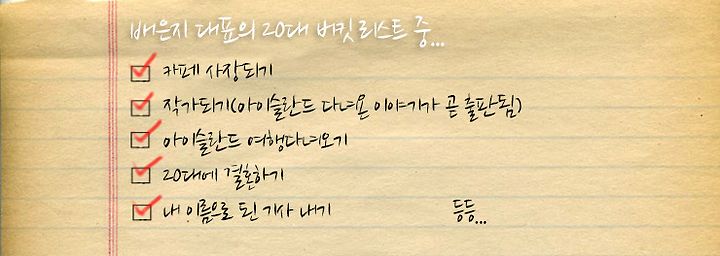 배은지 대표의 20대 버킷리스트 중...
카페 사장되기
작가되기(아이슬란드 다녀온 이야기가 곧 출판됨)
아이슬란드 여행다녀오기
20대에 결혼하기
내 이름으로 된 기사 내기 등등...